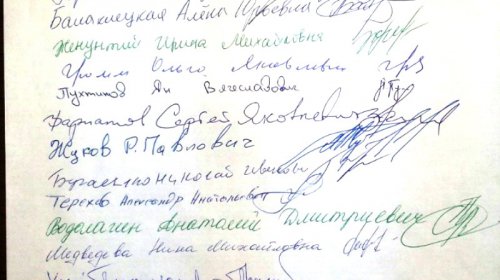 Балаклецкая Алёна Юрьевна
Женунтий Ирина Михайловна
Гримм Ольга Яковлевна
Пухтинов Ян Вячеславович
Сергей Яковлевич
Жуков Р. Павлович
Николай Иванович
Терехов Александр Анатольевич
Водолагин Анатолий Дмитриевич
Медведева Нина Михайловна